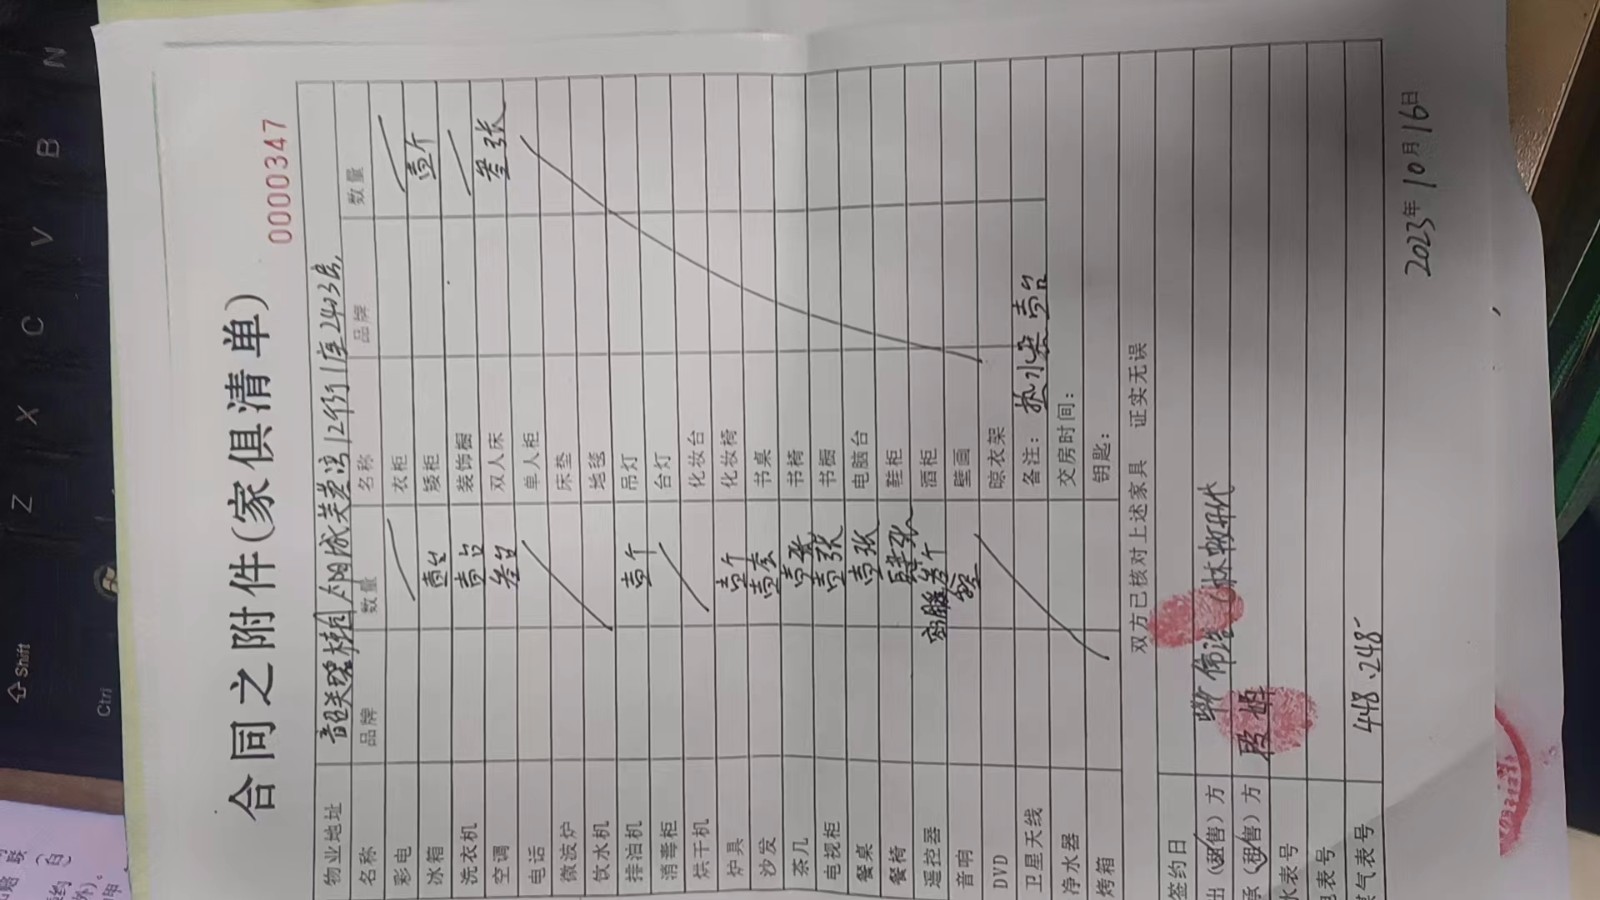 合同之附件(家俱清单)
0000347
物业地址 韶关碧桂园太阳城芙蓉湾12街1座2403房
名称 品牌 数量 名称 品牌 数量
彩电 衣柜
冰箱 壹台 矮柜 壹个
洗衣机 壹台 装饰橱
空调 叁台 双人床 叁张
电话 单人柜
微波炉 床垫
饮水机 地毯
排油机 壹个 吊灯
消毒柜 台灯
烘干机 化妆台
炉具 壹个 化妆椅
沙发 壹套 书桌
茶几 壹张 书椅
电视柜 壹张 书橱
餐桌 壹张 电脑台
餐椅 肆张 鞋柜
遥控器 酒柜
音响 壁画
DVD 晾衣架
卫星天线 备注: 热水器 壹台
净水器 交房时间:
烤箱 钥匙:
双方已核对上述家具 证实无误
签约日
出(租售)方
承(租售)方
水表号
电表号
煤气表号 448.248
2023年10月16日
Shift
Ctrl
Z X C V B N